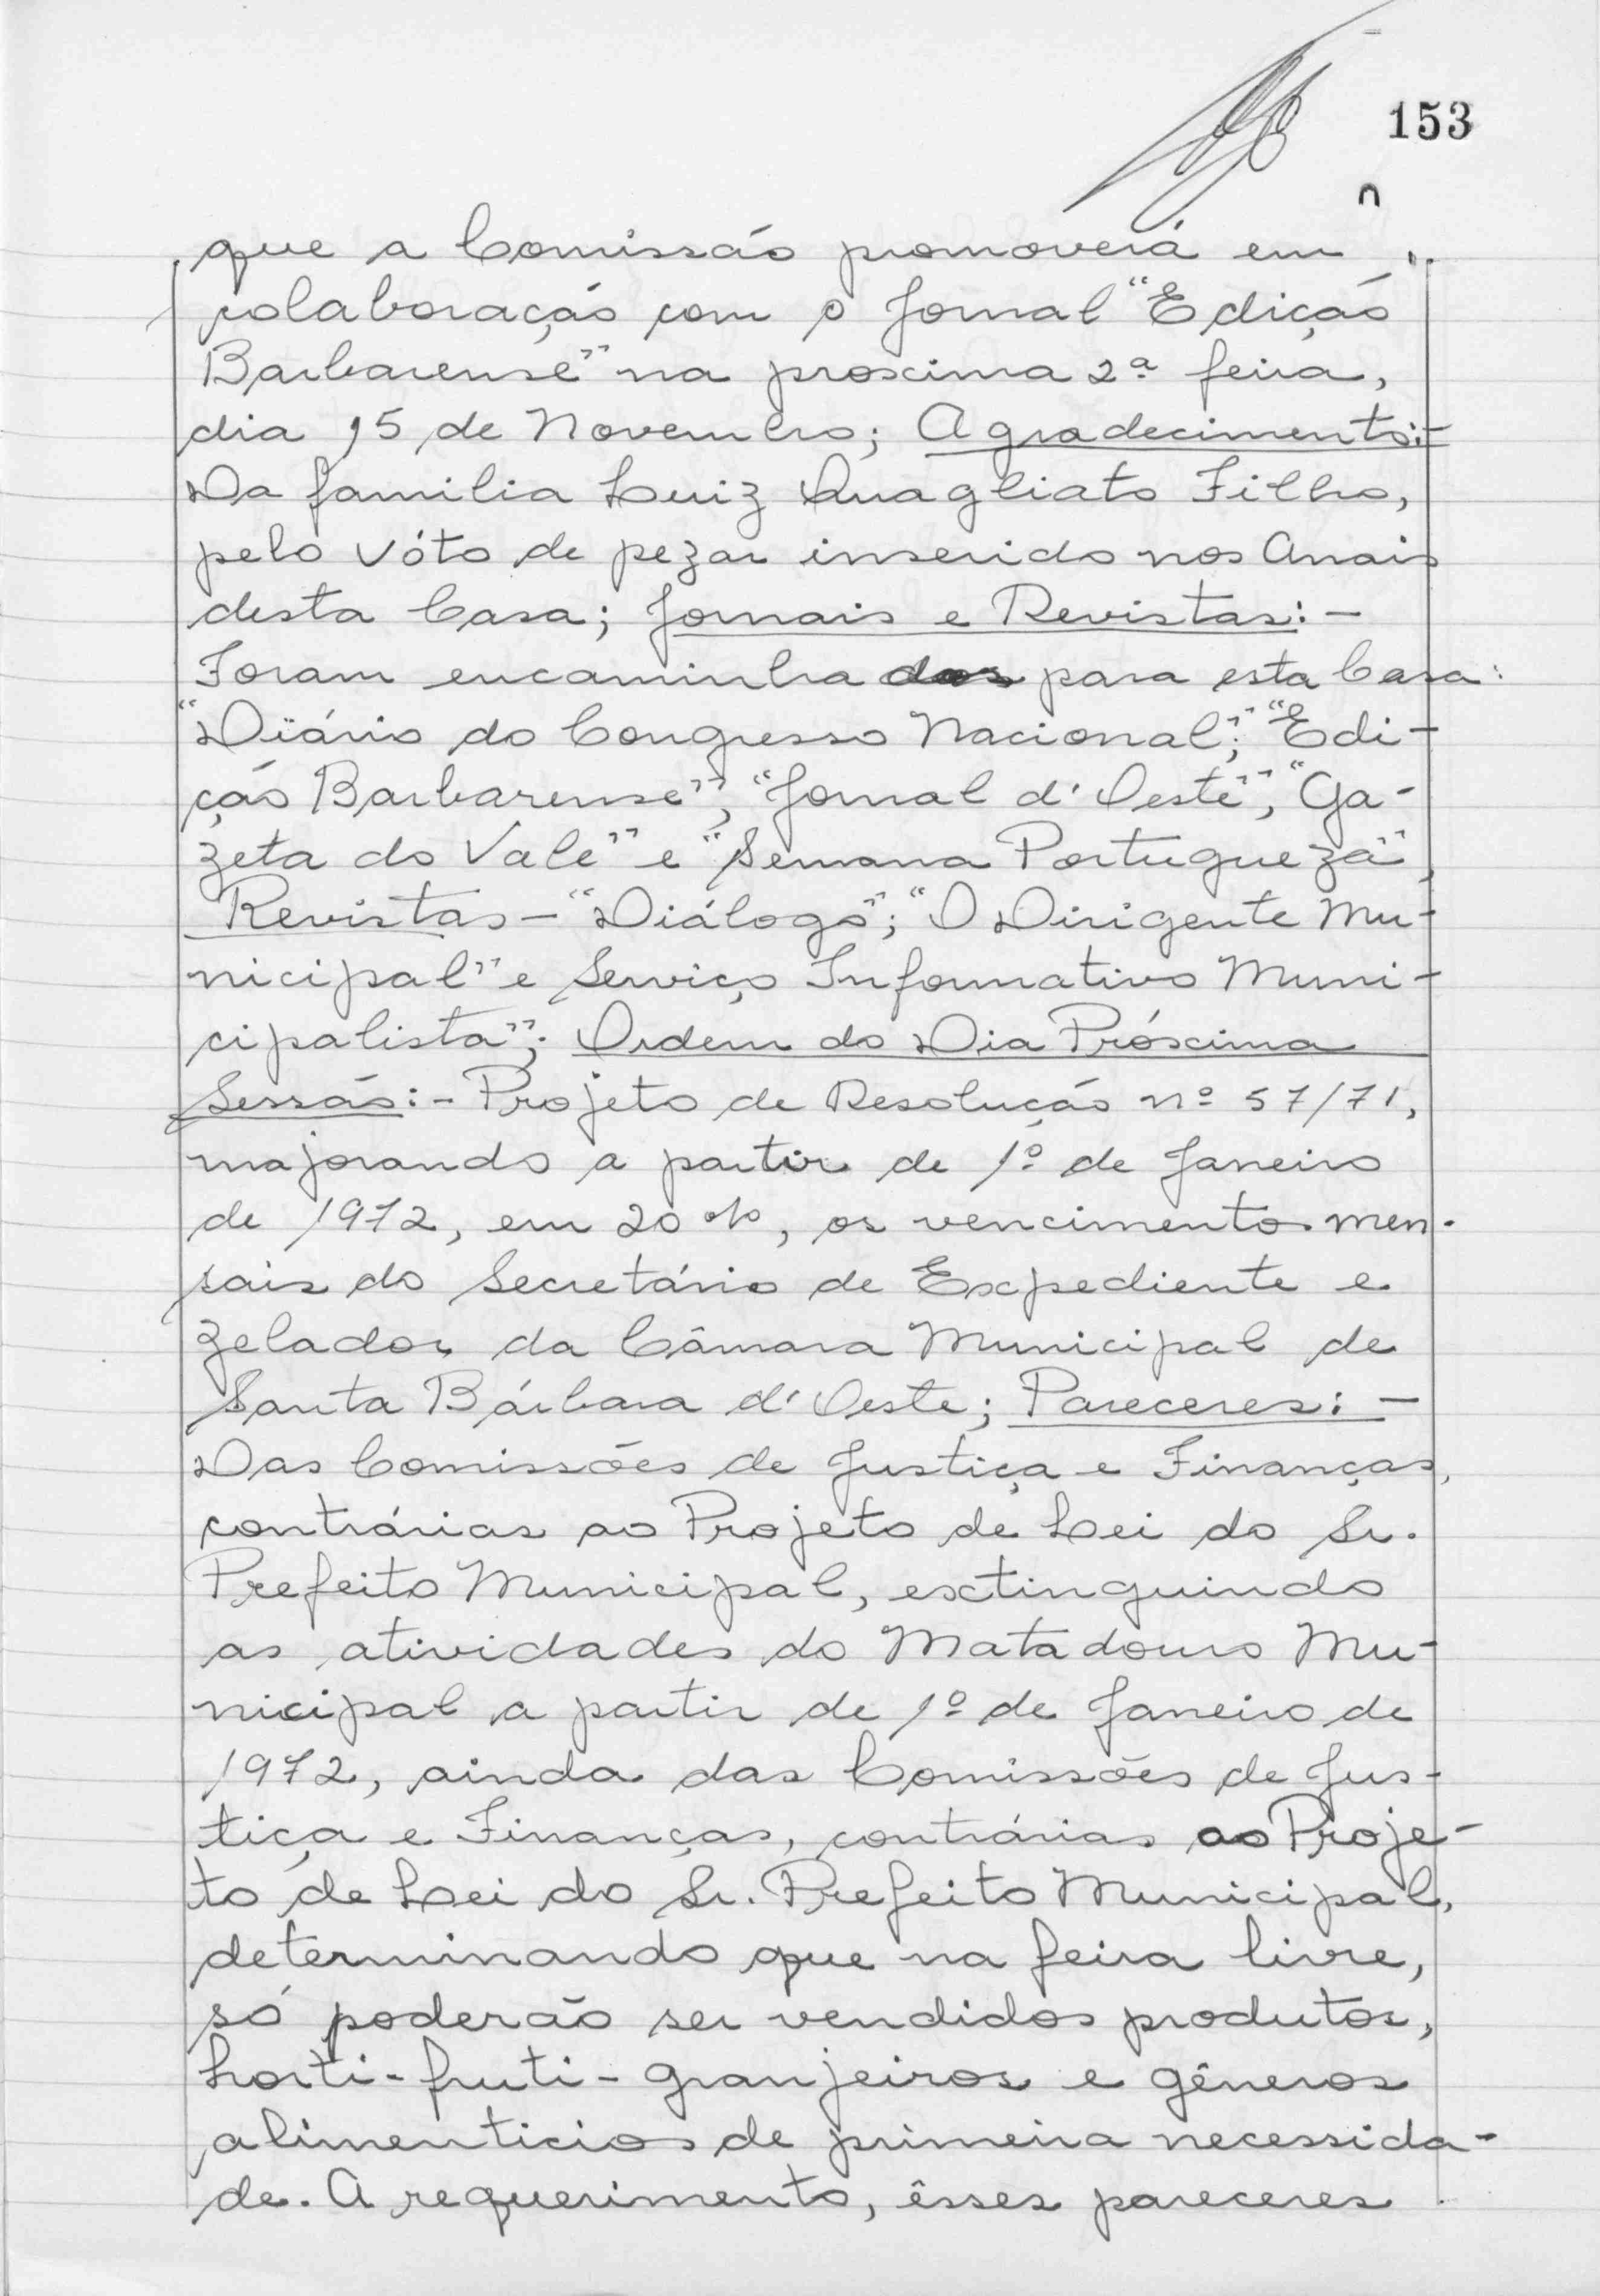 153
que a Comissão promoverá em
colaboração com o Jornal "Edição
Barbarense" na proxima 2ª feira,
dia 15 de Novembro; Agradecimento:-
Da familia Luiz Quagliato Filho,
pelo vóto de pezar inserido nos Anais
desta Casa; Jornais e Revistas:-
Foram encaminhados para esta Casa:
"Diário do Congresso Nacional"; "Edi-
ção Barbarense", "Jornal d'Oeste", "Ga-
zeta do Vale" e "Semana Portugueza",
Revistas - "Diálogo"; "O Dirigente Mu-
nicipal" e Serviço Informativo Muni-
cipalista"; Ordem do Dia Próxima
Sessão:- Projeto de Resolução nº 57/71,
majorando a partir de 1º de Janeiro
de 1972, em 20%, os vencimentos men-
sais do Secretário de Expediente e
zelador da Câmara Municipal de
Santa Bárbara d'Oeste; Pareceres:-
Das Comissões de Justiça e Finanças,
contrárias ao Projeto de Lei do Sr.
Prefeito Municipal, extinguindo
as atividades do Matadouro Mu-
nicipal a partir de 1º de Janeiro de
1972, ainda das Comissões de Jus-
tiça e Finanças, contrárias ao Proje-
to de Lei do Sr. Prefeito Municipal,
determinando que na feira livre,
só poderão ser vendidos produtos,
horti-fruti-granjeiros e gêneros
alimenticios de primeira necessida-
de. A requerimento, êsses pareceres